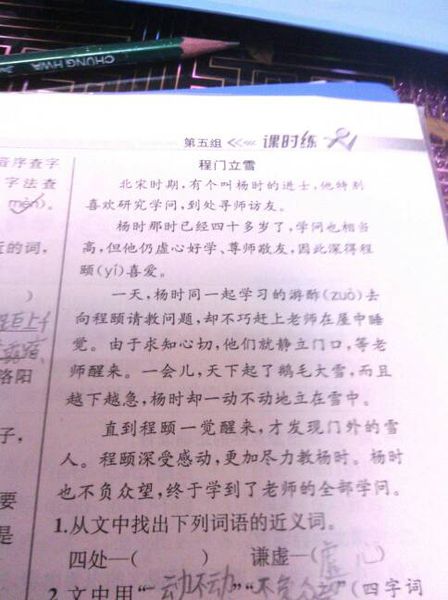 CHUNG HWA
第五组 课时练
音序查字
字法查
mén)。
的词，
)
洛阳
子，
要
是
程门立雪
北宋时期，有个叫杨时的进士，他特别
喜欢研究学问，到处寻师访友。
杨时那时已经四十多岁了，学问也相当
高，但他仍虚心好学、尊师敬友，因此深得程
颐(yí)喜爱。
一天，杨时同一起学习的游酢(zuò)去
向程颐请教问题，却不巧赶上老师在屋中睡
觉。由于求知心切，他们就静立门口，等老
师醒来。一会儿，天下起了鹅毛大雪，而且
越下越急，杨时却一动不动地立在雪中。
直到程颐一觉醒来，才发现门外的雪
人。程颐深受感动，更加尽力教杨时。杨时
也不负众望，终于学到了老师的全部学问。
1.从文中找出下列词语的近义词。
四处—( ) 谦虚—(虚心
2.文中用“一动不动”“不负众望”(四字词